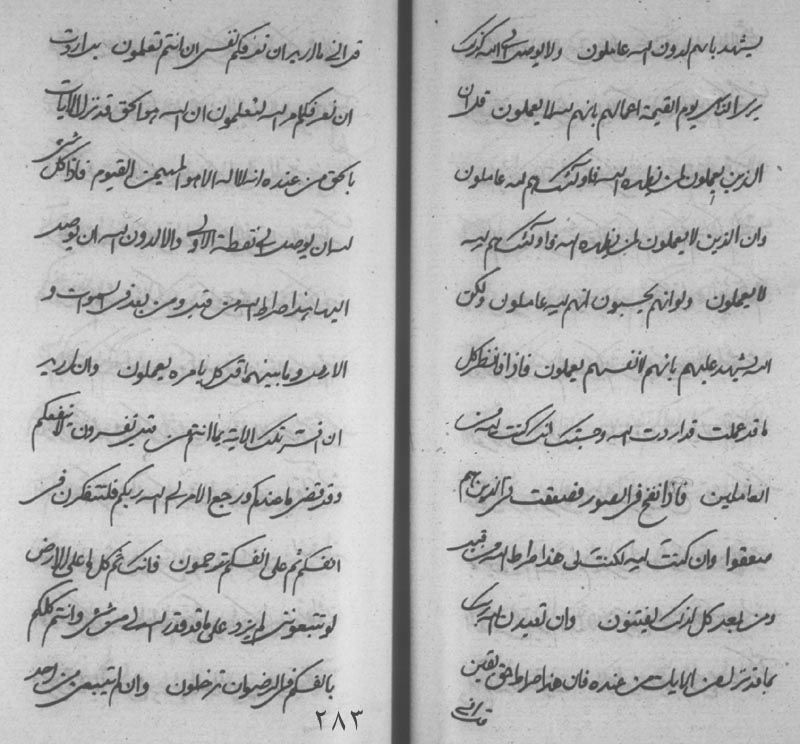 يشهد بانهم لدون الله عاملون ولا يوصل الى الله كذلك
يرى الناس يوم القيمة اعمالهم بانهم لله لا يعملون قل ان
الذين يعملون لمن يظهره الله فاولئك هم لله عاملون
وان الذين لا يعملون لمن يظهره الله فاولئك هم لله
لا يعملون ولو انهم يحسبون انهم لله عاملون ولكن
الله يشهد عليهم بانهم لانفسهم يعملون فاذا فانظر كل
ما قد عملت قد اردت الله وحسبت انك كنت لله من
العاملين فاذا نفخ في الصور فصعقت في الذينهم
صعقوا وان كنت لله لكنت لى هذا صراط الله من قبل
ومن بعد كل لذلك ليفتنون وان تعبدن الله ربك
بما قد نزل من الايات من عنده فان هذا صراط حق يقين
قد انني
قد انني ما اريد ان نعرفكم نفسى ان انتم تعلمون بل اردت
ان نعرفكم امر الله لتعلمون ان الله هو الحق قد نزل الايات
بالحق من عنده انه لا اله الا هو المهيمن القيوم فاذا كل شئ
لله ان يوصل الى نقطة الاولى والا لدون الله ان يوصل
اليها هذا صراط الله من قبل ومن بعد في السموات و
الارض وما بينهما قل كل بامره يعملون وان اريد
ان افسر تلك الاية بما انتم من قبل تفسرون لا ينفعكم
وقد قضى ما عندكم ورجع الامر الى الله ربكم فلتتفكرن في
انفسكم ثم على انفسكم ترحمون فانك ثم كل ما على الارض
لو تتبعونني لم يزد على ما قد قدر الله لي من شئ وانتم كلكم
بانفسكم في الرضوان تدخلون وان لم يتبعني من احد
٢٨٣